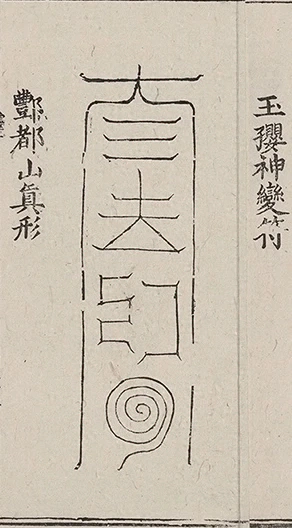 玉孾神變符
酆都山眞形